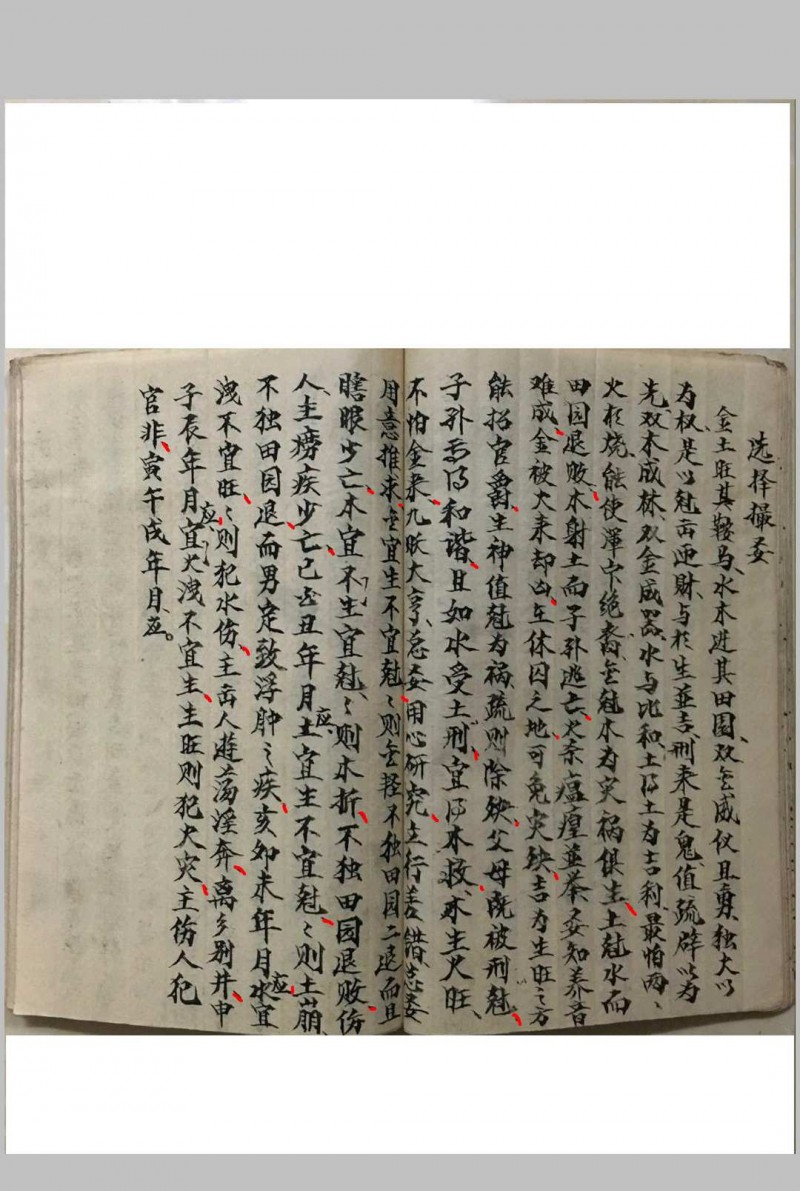 选择撮要
金土旺其鞍马、水木进其田园、双金威仪且勇、独火以
为权、是以克面迎财、与于生并吉、刑来是鬼、值疏辟以为
先、双木成林、双金成器、水与比和、土得土为吉利、最怕两〻
火于烧、能使浑家绝裔、金克木为灾祸俱生、土克水而
田园退败、木射土而子孙逃亡、火杀瘟瘟并举、要知养音
难成、金被火来却凶、在休囚之地、可免灾殃、吉为生旺之方
能招官爵、生神值克为祸、疏则除殃、父母既被刑克、
子孙不得和谐、且如水受土刑、宜得木救、木生火旺、
不怕金来、凡吹大亨、总要用心研究、立行善错志要
用意推求、金宜生不宜克、〻则金轻不独田园二退而且
瞎眼少亡、木宜不生宜克、〻则木折、不独田园退败伤
人主痨疾少亡、巳酉丑年月应、土宜生不宜克、〻则土崩
不独田园退、而男定致浮肿之疾、亥卯未年月应、水宜
洩不宜旺、〻则犯水伤、主出人游荡淫奔、离乡别井、申
子辰年月应、宜火洩不宜生、生旺则犯火灾、主伤人犯
官非、寅午戌年月应。